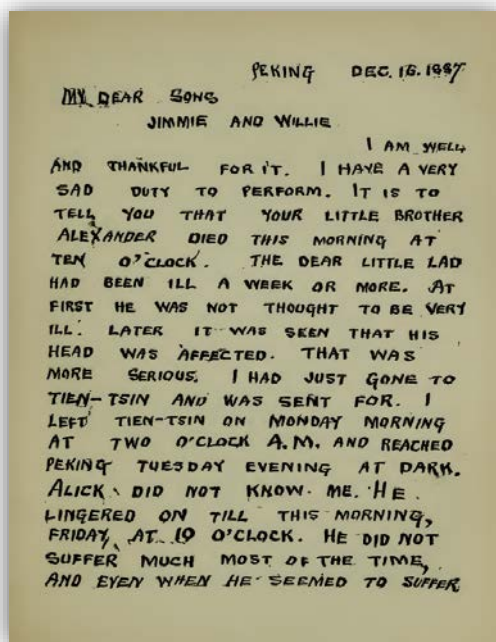 PEKING DEC. 16. 1887.
MY DEAR SONS
JIMMIE AND WILLIE
I AM WELL
AND THANKFUL FOR IT. I HAVE A VERY
SAD DUTY TO PERFORM. IT IS TO
TELL YOU THAT YOUR LITTLE BROTHER
ALEXANDER DIED THIS MORNING AT
TEN O'CLOCK. THE DEAR LITTLE LAD
HAD BEEN ILL A WEEK OR MORE. AT
FIRST HE WAS NOT THOUGHT TO BE VERY
ILL. LATER IT WAS SEEN THAT HIS
HEAD WAS AFFECTED. THAT WAS
MORE SERIOUS. I HAD JUST GONE TO
TIEN-TSIN AND WAS SENT FOR. I
LEFT TIEN-TSIN ON MONDAY MORNING
AT TWO O'CLOCK A.M. AND REACHED
PEKING TUESDAY EVENING AT DARK.
ALICK DID NOT KNOW ME. HE
LINGERED ON TILL THIS MORNING,
FRIDAY, AT 10 O'CLOCK. HE DID NOT
SUFFER MUCH MOST OF THE TIME,
AND EVEN WHEN HE SEEMED TO SUFFER